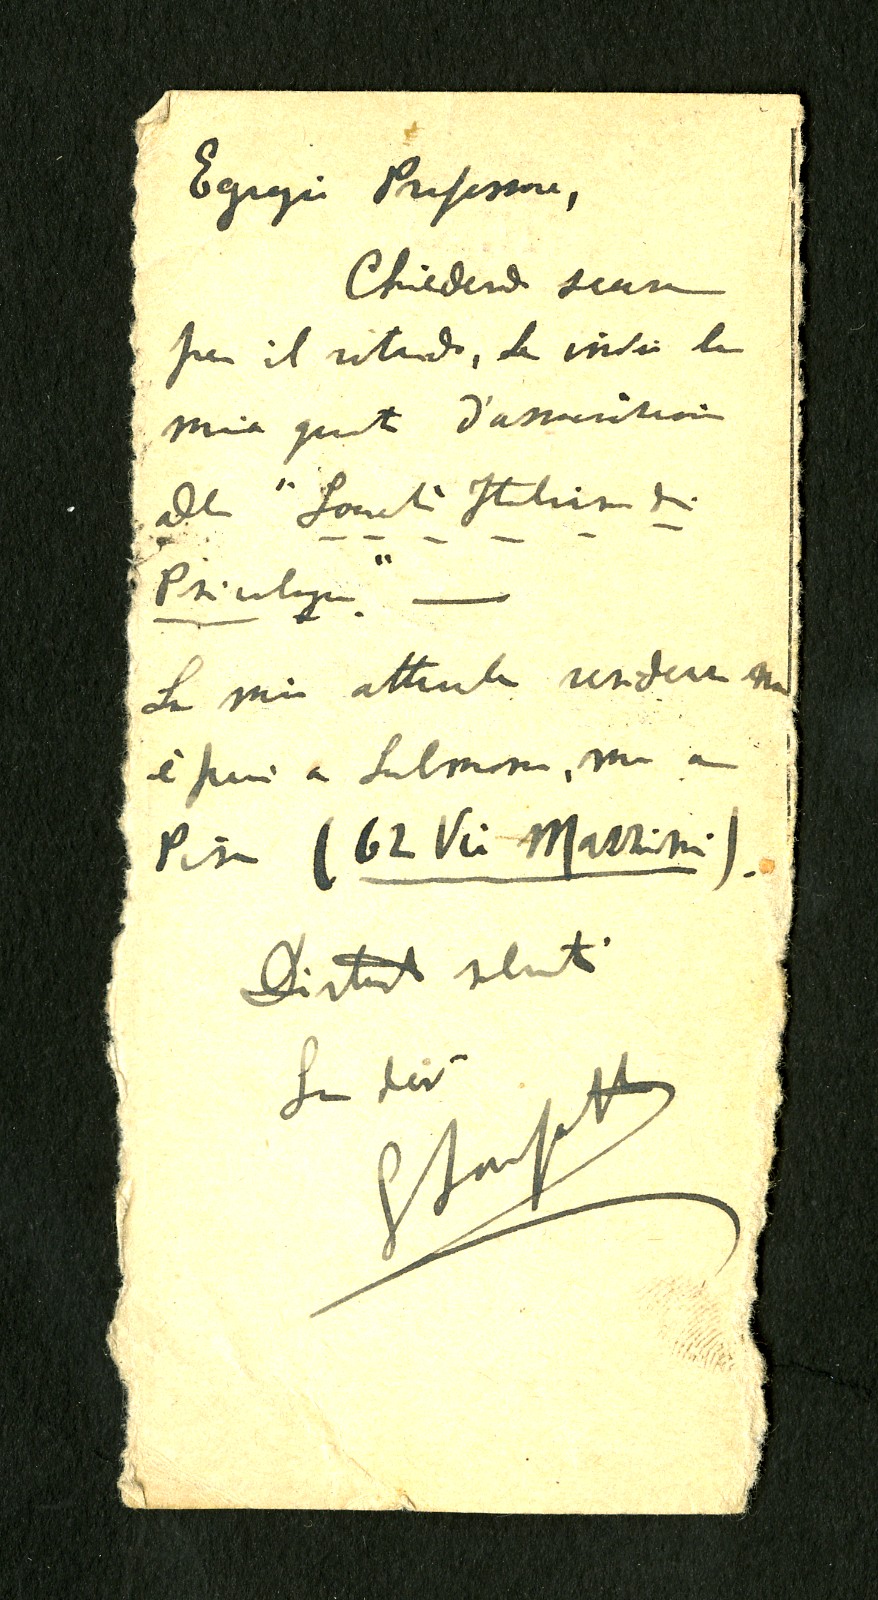 Egregio Professore,
Chiedendo scusa
per il ritardo, Le invio la
mia quota d'associazione
alla "Società Italiana di
Psicologia." —
La mia attuale residenza non
è più a Sulmona, ma a
Pisa (62 Via Mazzini).
Distinti saluti
Suo dev